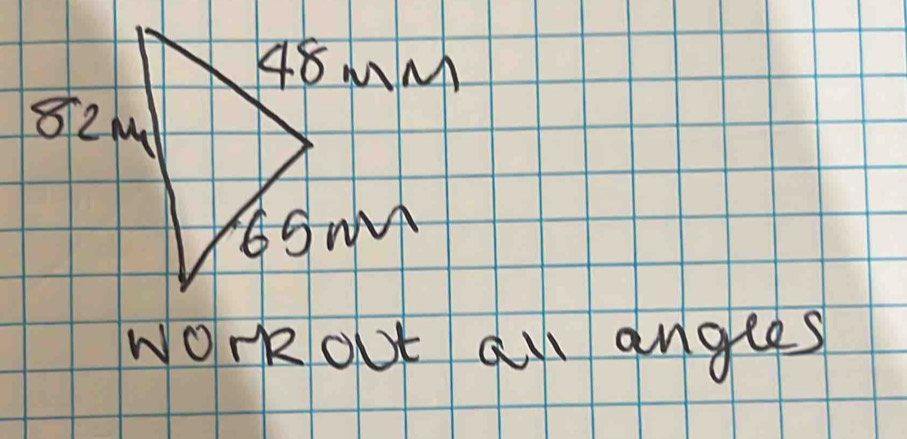 48mm
82m
65mm
Work out all angles